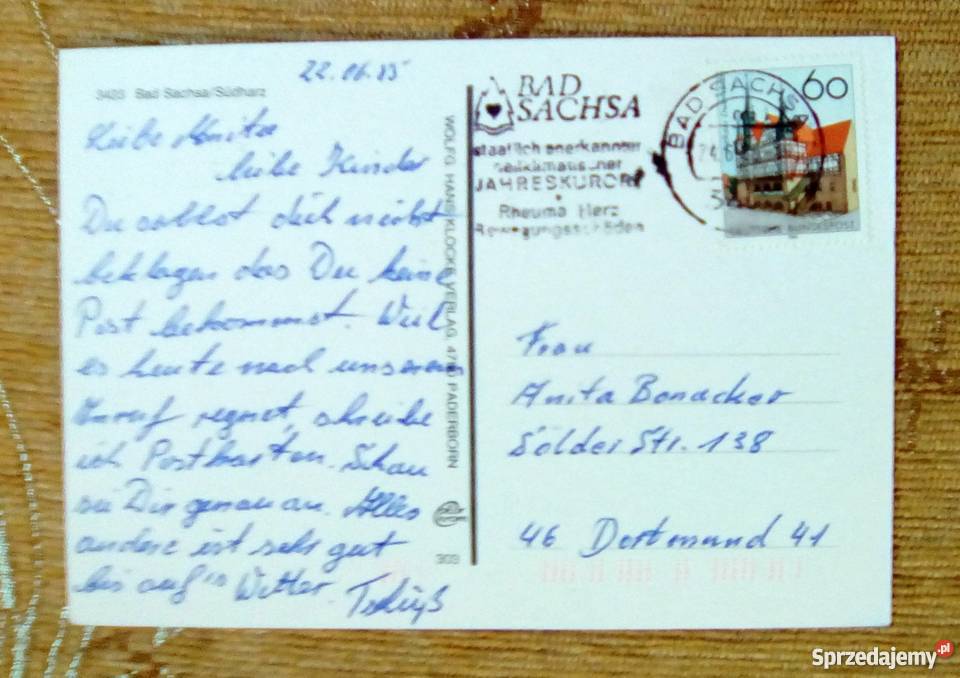 22.06.85
3423 Bad Sachsa/Südharz
Liebe Anita
liebe Kinder
Du sollst dich nicht
beklagen das Du keine
Post bekommst. Weil
es heute nach unserem
Anruf regnet, schreibe
ich Postkarten. Schau
sie Dir genau an. Alles
andere ist sehr gut
bis auf's Wetter. Tschüß
WOLFG. HANS KLOCKE VERLAG, 4790 PADERBORN
303
BAD
SACHSA
staatlich anerkannter
heilklimatischer
JAHRESKURORT
Rheuma Herz
Bewegungsschäden
BAD SACHSA
60
BUNDESPOST
Frau
Anita Bonacker
Sölder Str. 138
46 Dortmund 41
Sprzedajemy.pl